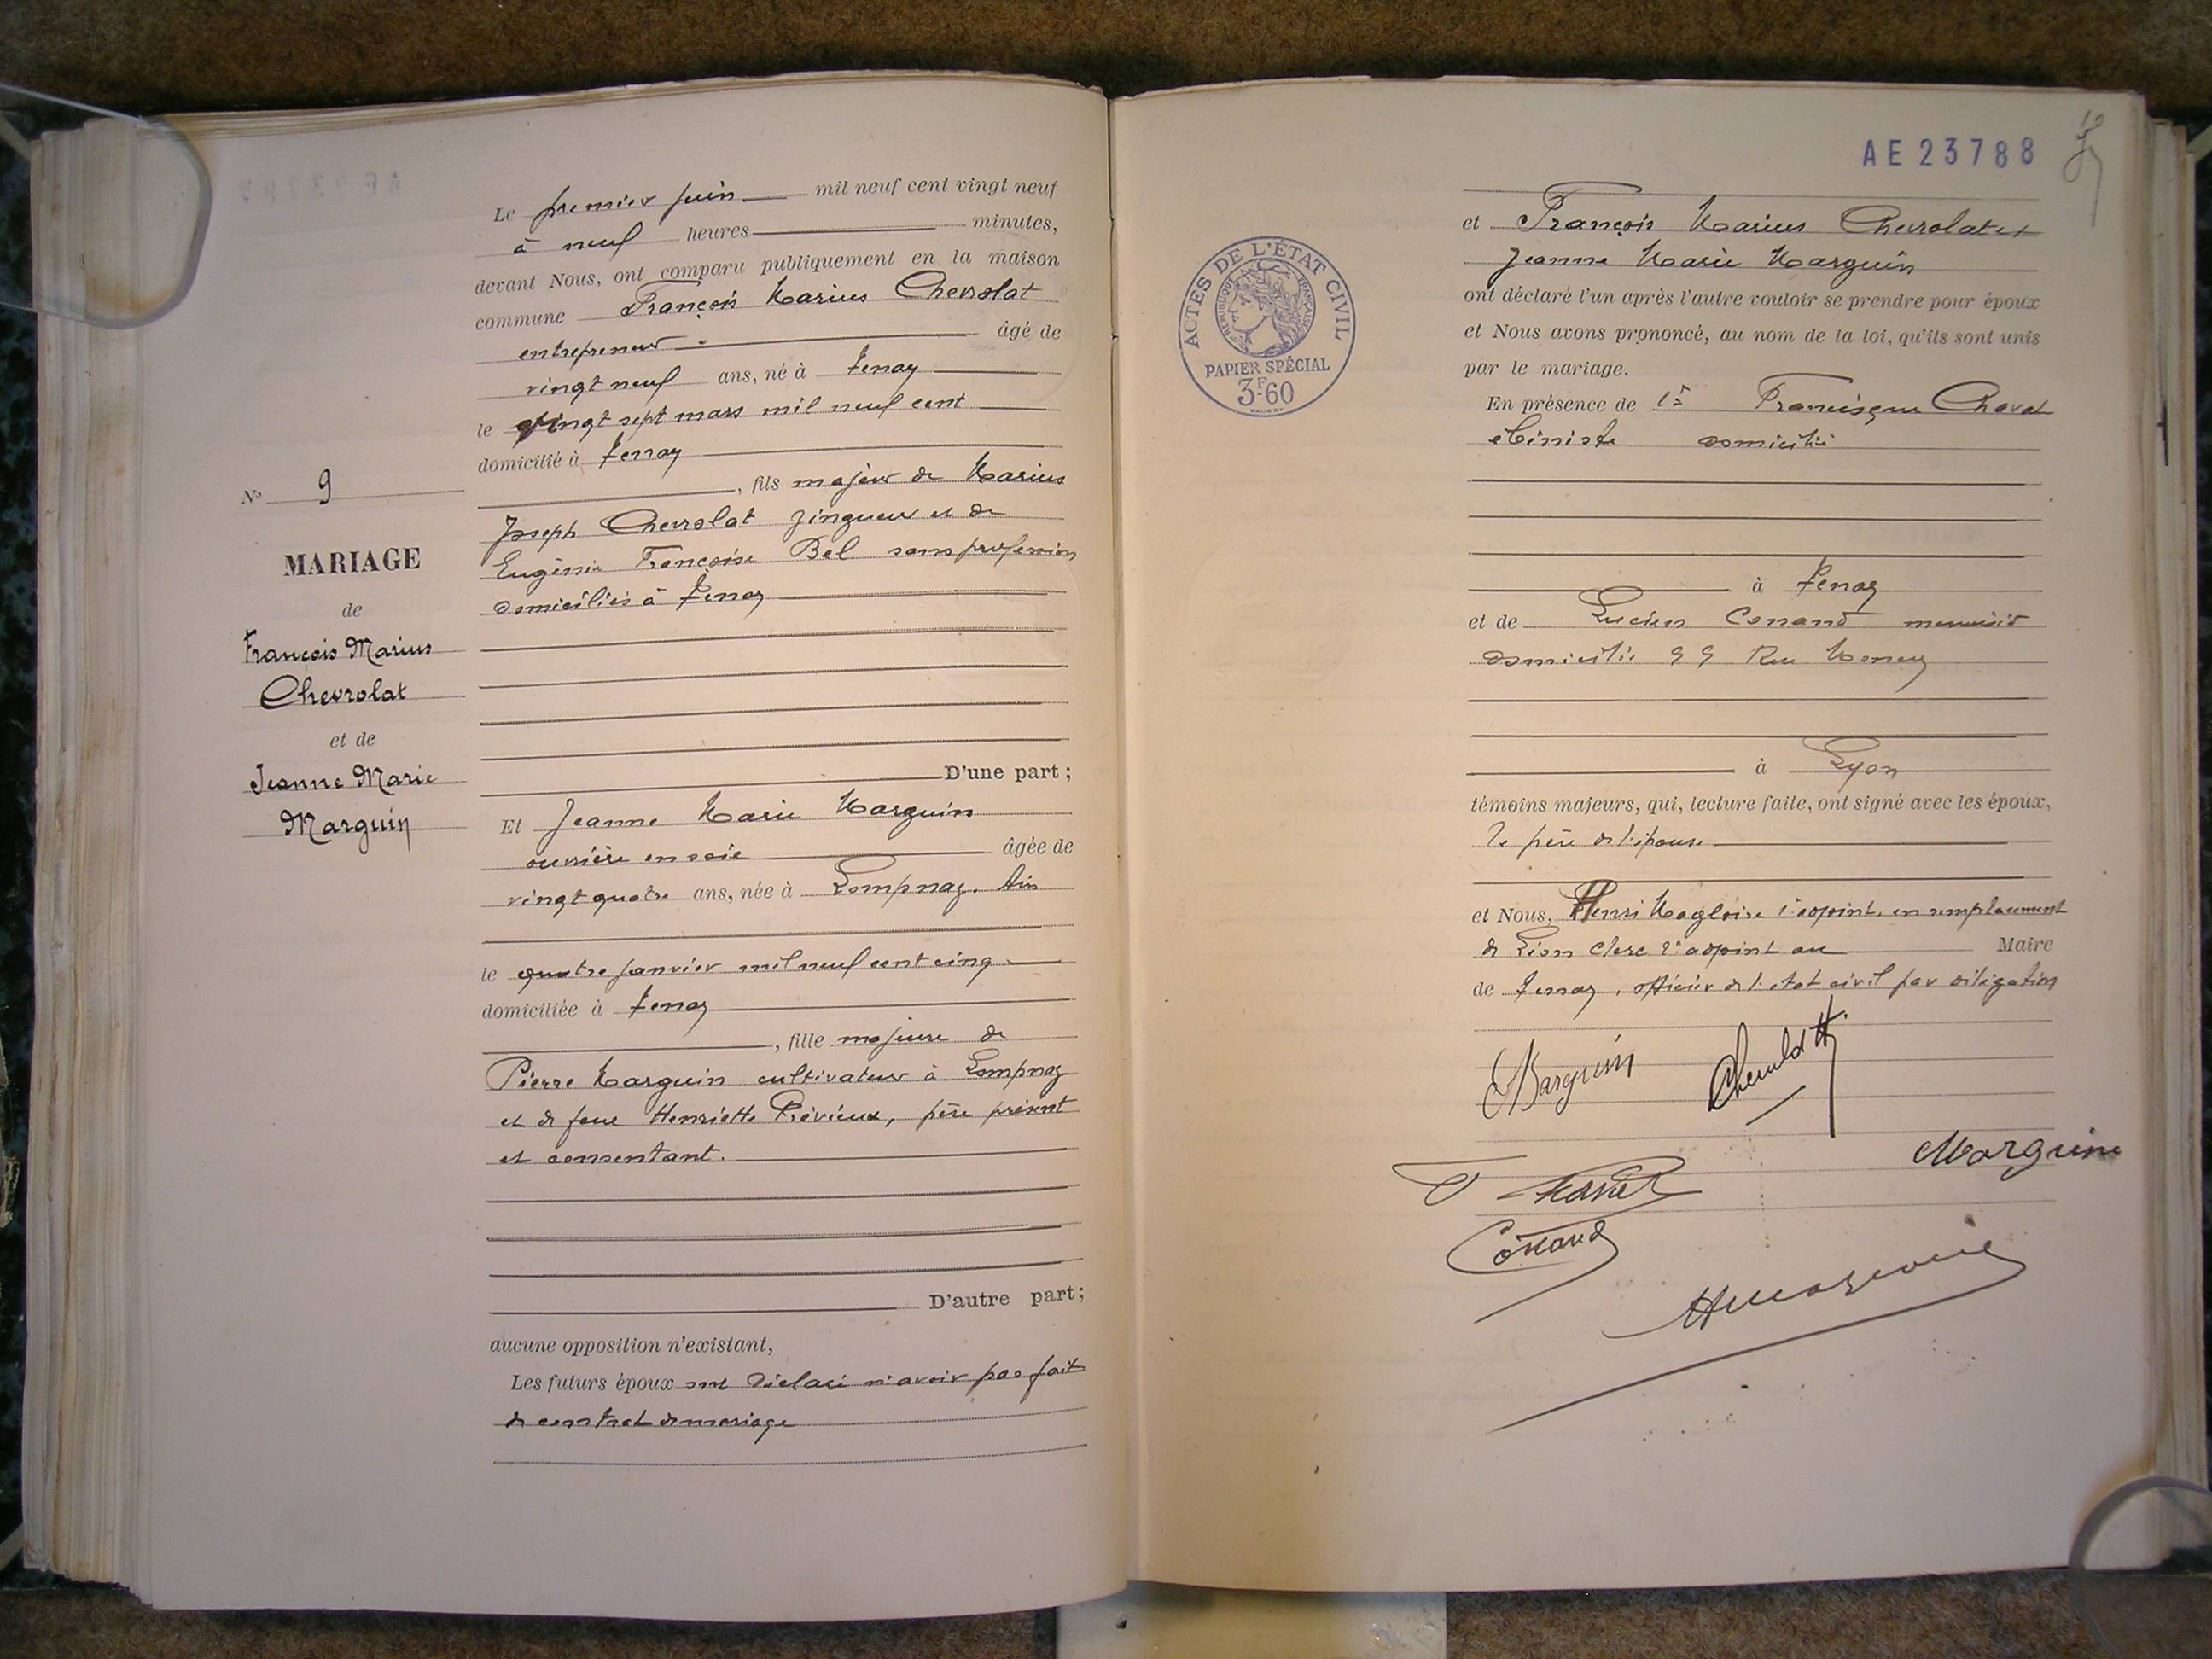 Le premier juin mil neuf cent vingt neuf
à neuf heures minutes,
devant Nous, ont comparu publiquement en la maison
commune François Marius Chevrolat
entrepreneur âgé de
vingt neuf ans, né à Tenay
le vingt sept mars mil neuf cent
domicilié à Tenay
, fils majeur de Marius
Joseph Chevrolat zingueur et de
Eugénie Françoise Bel sans profession
domiciliés à Tenay
D'une part ;
Et Jeanne Marie Marguin
ouvrière en soie âgée de
vingt quatre ans, née à Lompnaz. Ain
le quatre janvier mil neuf cent cinq
domiciliée à Tenay
, fille majeure de
Pierre Marguin cultivateur à Lompnaz
et de feue Henriette Prévieux, père présent
et consentant.
D'autre part ;
aucune opposition n'existant,
Les futurs époux ont déclaré n'avoir pas fait
de contrat de mariage
No 9
MARIAGE
de
François Marius
Chevrolat
et de
Jeanne Marie
Marguin
AE23788
ACTES DE L'ÉTAT CIVIL
RÉPUBLIQUE FRANÇAISE
PAPIER SPÉCIAL
3F60
et François Marius Chevrolat et
Jeanne Marie Marguin
ont déclaré l'un après l'autre vouloir se prendre pour époux
et Nous avons prononcé, au nom de la loi, qu'ils sont unis
par le mariage.
En présence de Francisque
ébéniste domicilié
à Tenay
et de Lucien Conand menuisier
domicilié 99 Rue Moncey
à Lyon
témoins majeurs, qui, lecture faite, ont signé avec les époux,
le père de l'épouse
et Nous, Henri Magloire 1er adjoint, en remplacement
de Léon Clerc 2e adjoint au Maire
de Tenay, officier de l'état civil par délégation
Marguin
Marguin
Conand